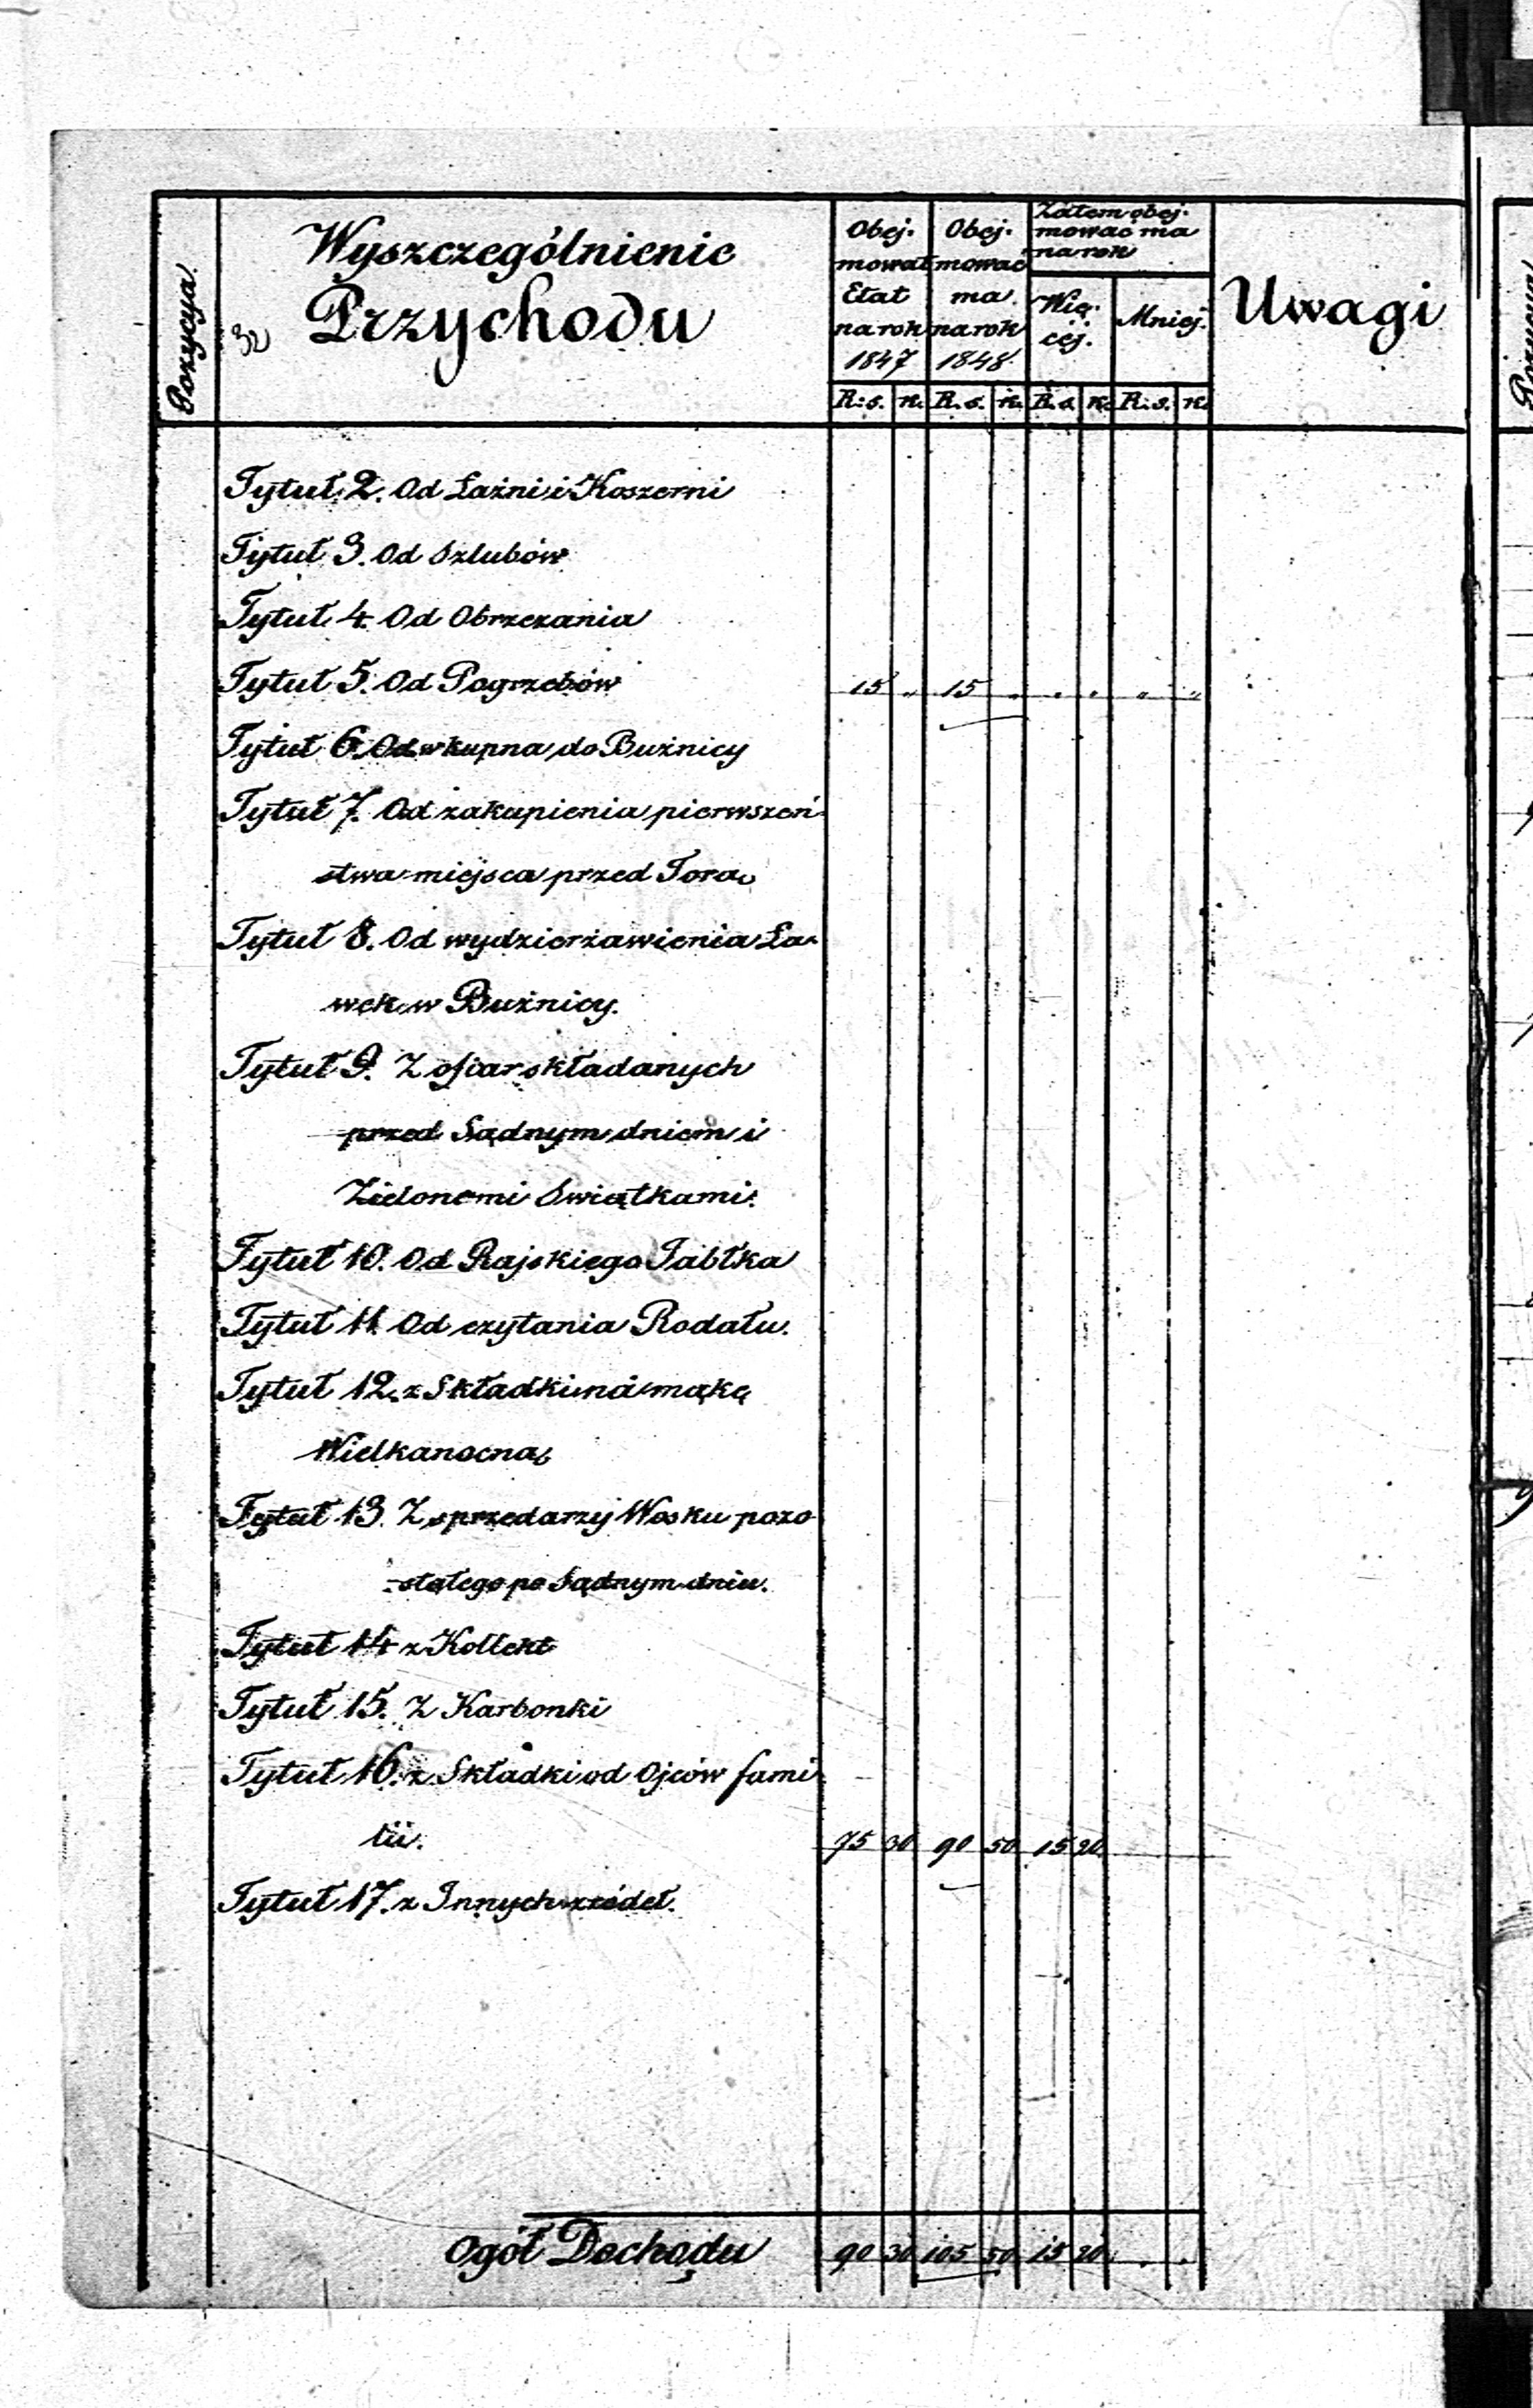 Pozycya.
Wyszczególnienie
Przychodu
Obej-
mował
Etat
na rok
1847
Obej-
mować
ma
na rok
1848.
Zatem obej-
mować ma
na rok
Wię-
cej.
Mniej.
Uwagi
R: s. k. R. s. k. R. s. k. R. s. k.
Tytuł 2. Od Łaźni i Koszerni
Tytuł 3. Od Szlubów
Tytuł 4. Od Obrzezania
Tytuł 5. Od Pogrzebów 15 „ 15 „ „ „ „ „
Tytuł 6. Od wkupna do Bużnicy
Tytuł 7. Od zakupienia pierwszeń-
stwa miejsca przed Torą
Tytuł 8. Od wydzierżawienia Ła-
wek w Bużnicy.
Tytuł 9. Z ofiar składanych
przed Sądnym dniem i
Zielonemi Swiątkami.
Tytuł 10. Od Rajskiego Jabłka
Tytuł 11. Od czytania Rodału.
Tytuł 12. z Składki na mąkę
Wielkanocną
Tytuł 13. Z sprzedarzy Wosku pozo-
stałego po Sądnym dniu.
Tytuł 14 z Kollekt
Tytuł 15. Z Karbonki
Tytuł 16. z Składki od Ojców fami-
lii. 75 30 90 50 15 20
Tytuł 17. z Innych źródeł.
Ogół Dochodu 90 30 105 50 15 20 . .